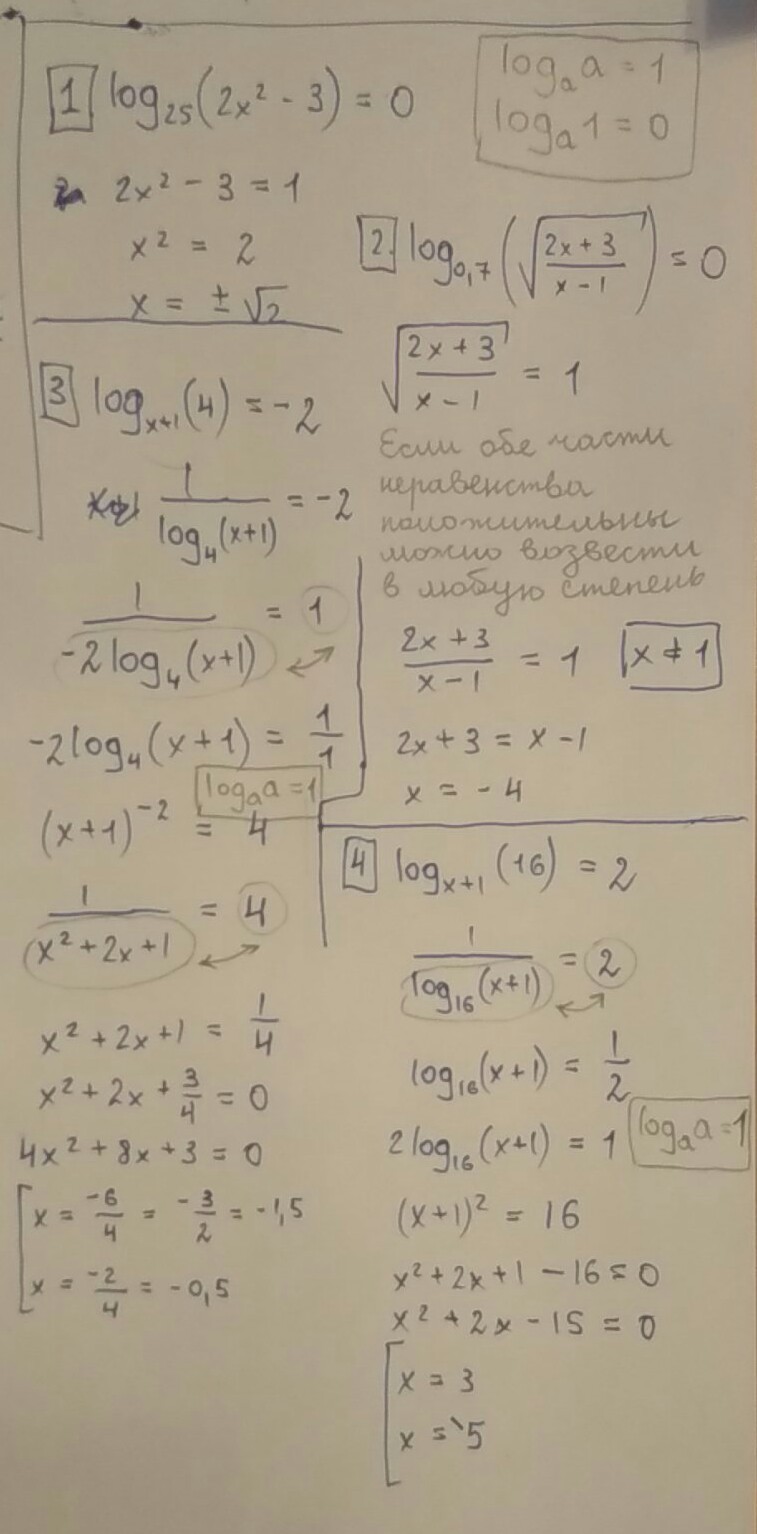 1 log₂₅(2x² - 3) = 0
2x² - 3 = 1
x² = 2
x = ±√2
logₐa = 1
logₐ1 = 0
2. log₀,₇(√((2x + 3)/(x - 1))) = 0
√((2x + 3)/(x - 1)) = 1
Если обе части
неравенства
положительны
можно возвести
в любую степень
(2x + 3)/(x - 1) = 1 x ≠ 1
2x + 3 = x - 1
x = - 4
3 logₓ₊₁(4) = -2
1/(log₄(x+1)) = -2
1/(-2log₄(x+1)) = 1
-2log₄(x + 1) = 1/1
logₐa = 1
(x+1)⁻² = 4
1/(x² + 2x + 1) = 4
x² + 2x + 1 = 1/4
x² + 2x + 3/4 = 0
4x² + 8x + 3 = 0
x = -6/4 = -3/2 = -1,5
x = -2/4 = -0,5
4 logₓ₊₁(16) = 2
1/(log₁₆(x+1)) = 2
log₁₆(x + 1) = 1/2
2log₁₆(x+1) = 1 logₐa = 1
(x+1)² = 16
x² + 2x + 1 - 16 = 0
x² + 2x - 15 = 0
x = 3
x = -5